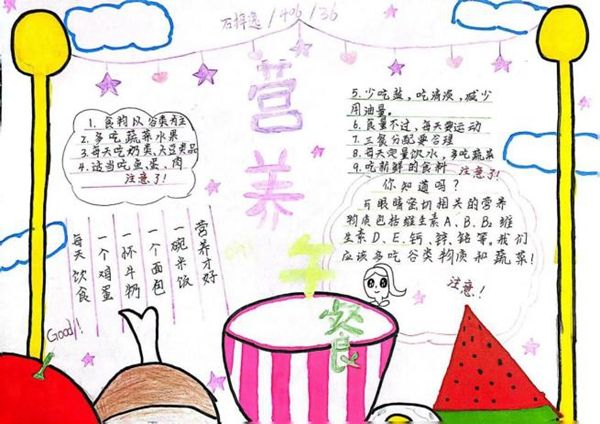 /406/36
营养午餐
1. 食物以谷类为主
2. 多吃蔬菜水果
3. 每天吃奶类、大豆类品
4. 适当吃鱼、蛋、肉
注意了!
5. 少吃盐,吃清淡,减少
用油量。
6. 食量不过,每天要运动
7. 三餐分配要合理
8. 每天定量饮水,多吃蔬菜
9. 吃新鲜的食料 注意了!
你知道吗?
与眼睛密切相关的营养
物质包括维生素A、B、B₂ 维
生素D、E、钙、锌、铬等,我们
应该多吃谷类物质和蔬菜!
注意!
每天饮食
一个鸡蛋
一杯牛奶
一个面包
一碗米饭
营养才好
Good!